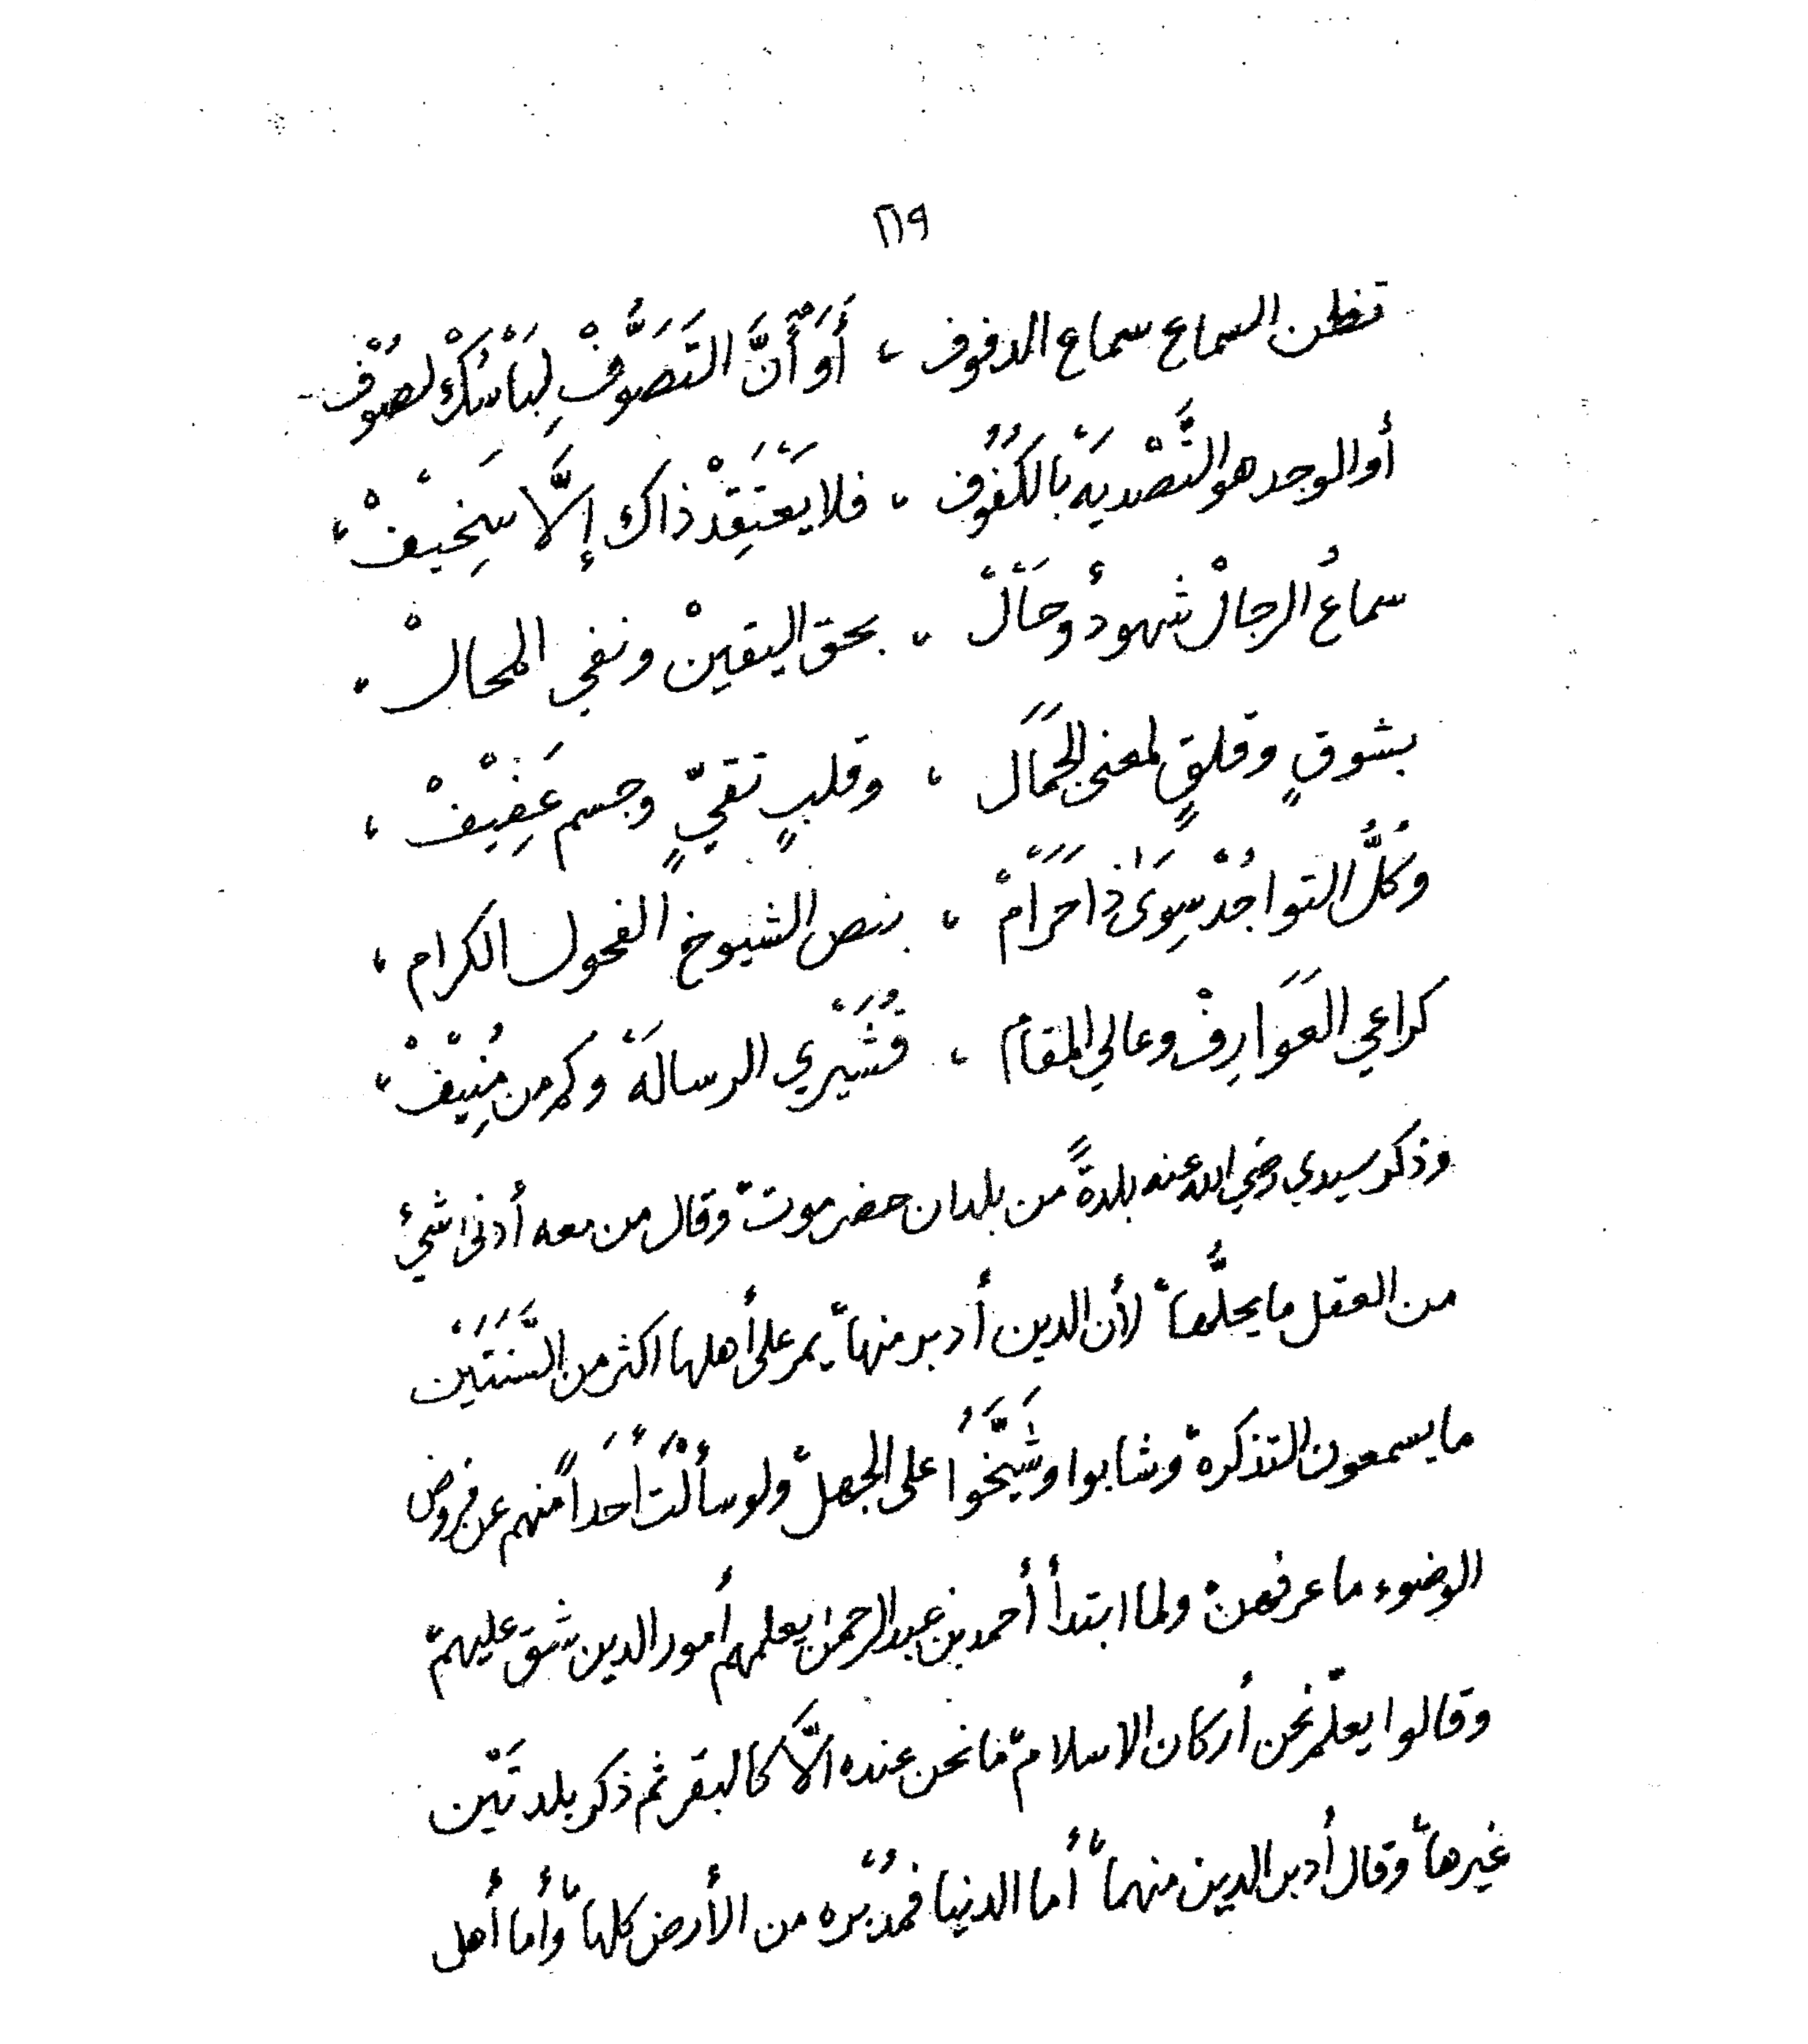 ٢١٩
تظن السماع سماع الدفوف ، أَوَ أَنَّ التَصَوُّفْ لِبَاسُكْ لصُوْف
أو الوجد هو التَّصْديَهْ بالكُفُوف ، فلا يَعْتَقِدْ ذاك إلَّا سَخِيْفْ ،
سماعُ الرجالْ شهودْ وحَالْ ، بحق اليقينْ ونفي المحالْ ،
بشوقٍ وقلقٍ لمعنى الجَمَال ، وقلبٍ تقيٍّ وجسم عَفِيْفْ ،
وكُلُّ التواجُدْ سِوَىٰ ذا حَرَامْ ، بنص الشيوخ الفحول الكرام ،
كراعي العَوَارِفْ وعالي المقام ، قُشَيْري الرسالَهْ وكم من مُنِيْفْ ،
وذكر سيدي رضي الله عنه بلدةً من بلدان حضرموت وقال من معه أدنى شيء
من العقل ما يحلُّها لأن الدين أدبر منها يمر على أهلها اكثر من السَّنَتَيْن
ما يسمعون التذكرة وشابوا وشَيَّخُوا على الجهل ولو سألْتَ أحَداً منهم عن فروض
الوضوء ما عرفهن ولما ابتدأ أحمد بن عبد الرحمن يعلمهم أمور الدين شق عليهم
وقالوا يعلّم نحن أركان الاسلام ما نحن عنده الَّا كالبقر ثم ذكر بلدتَيْن
غيرها وقال أدبر الدين منهما أما الدنيا فمدْبُره من الأرض كلها وأما أهل